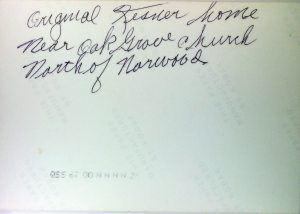 Original Kesner home
near Oak Grove Church
North of Norwood.